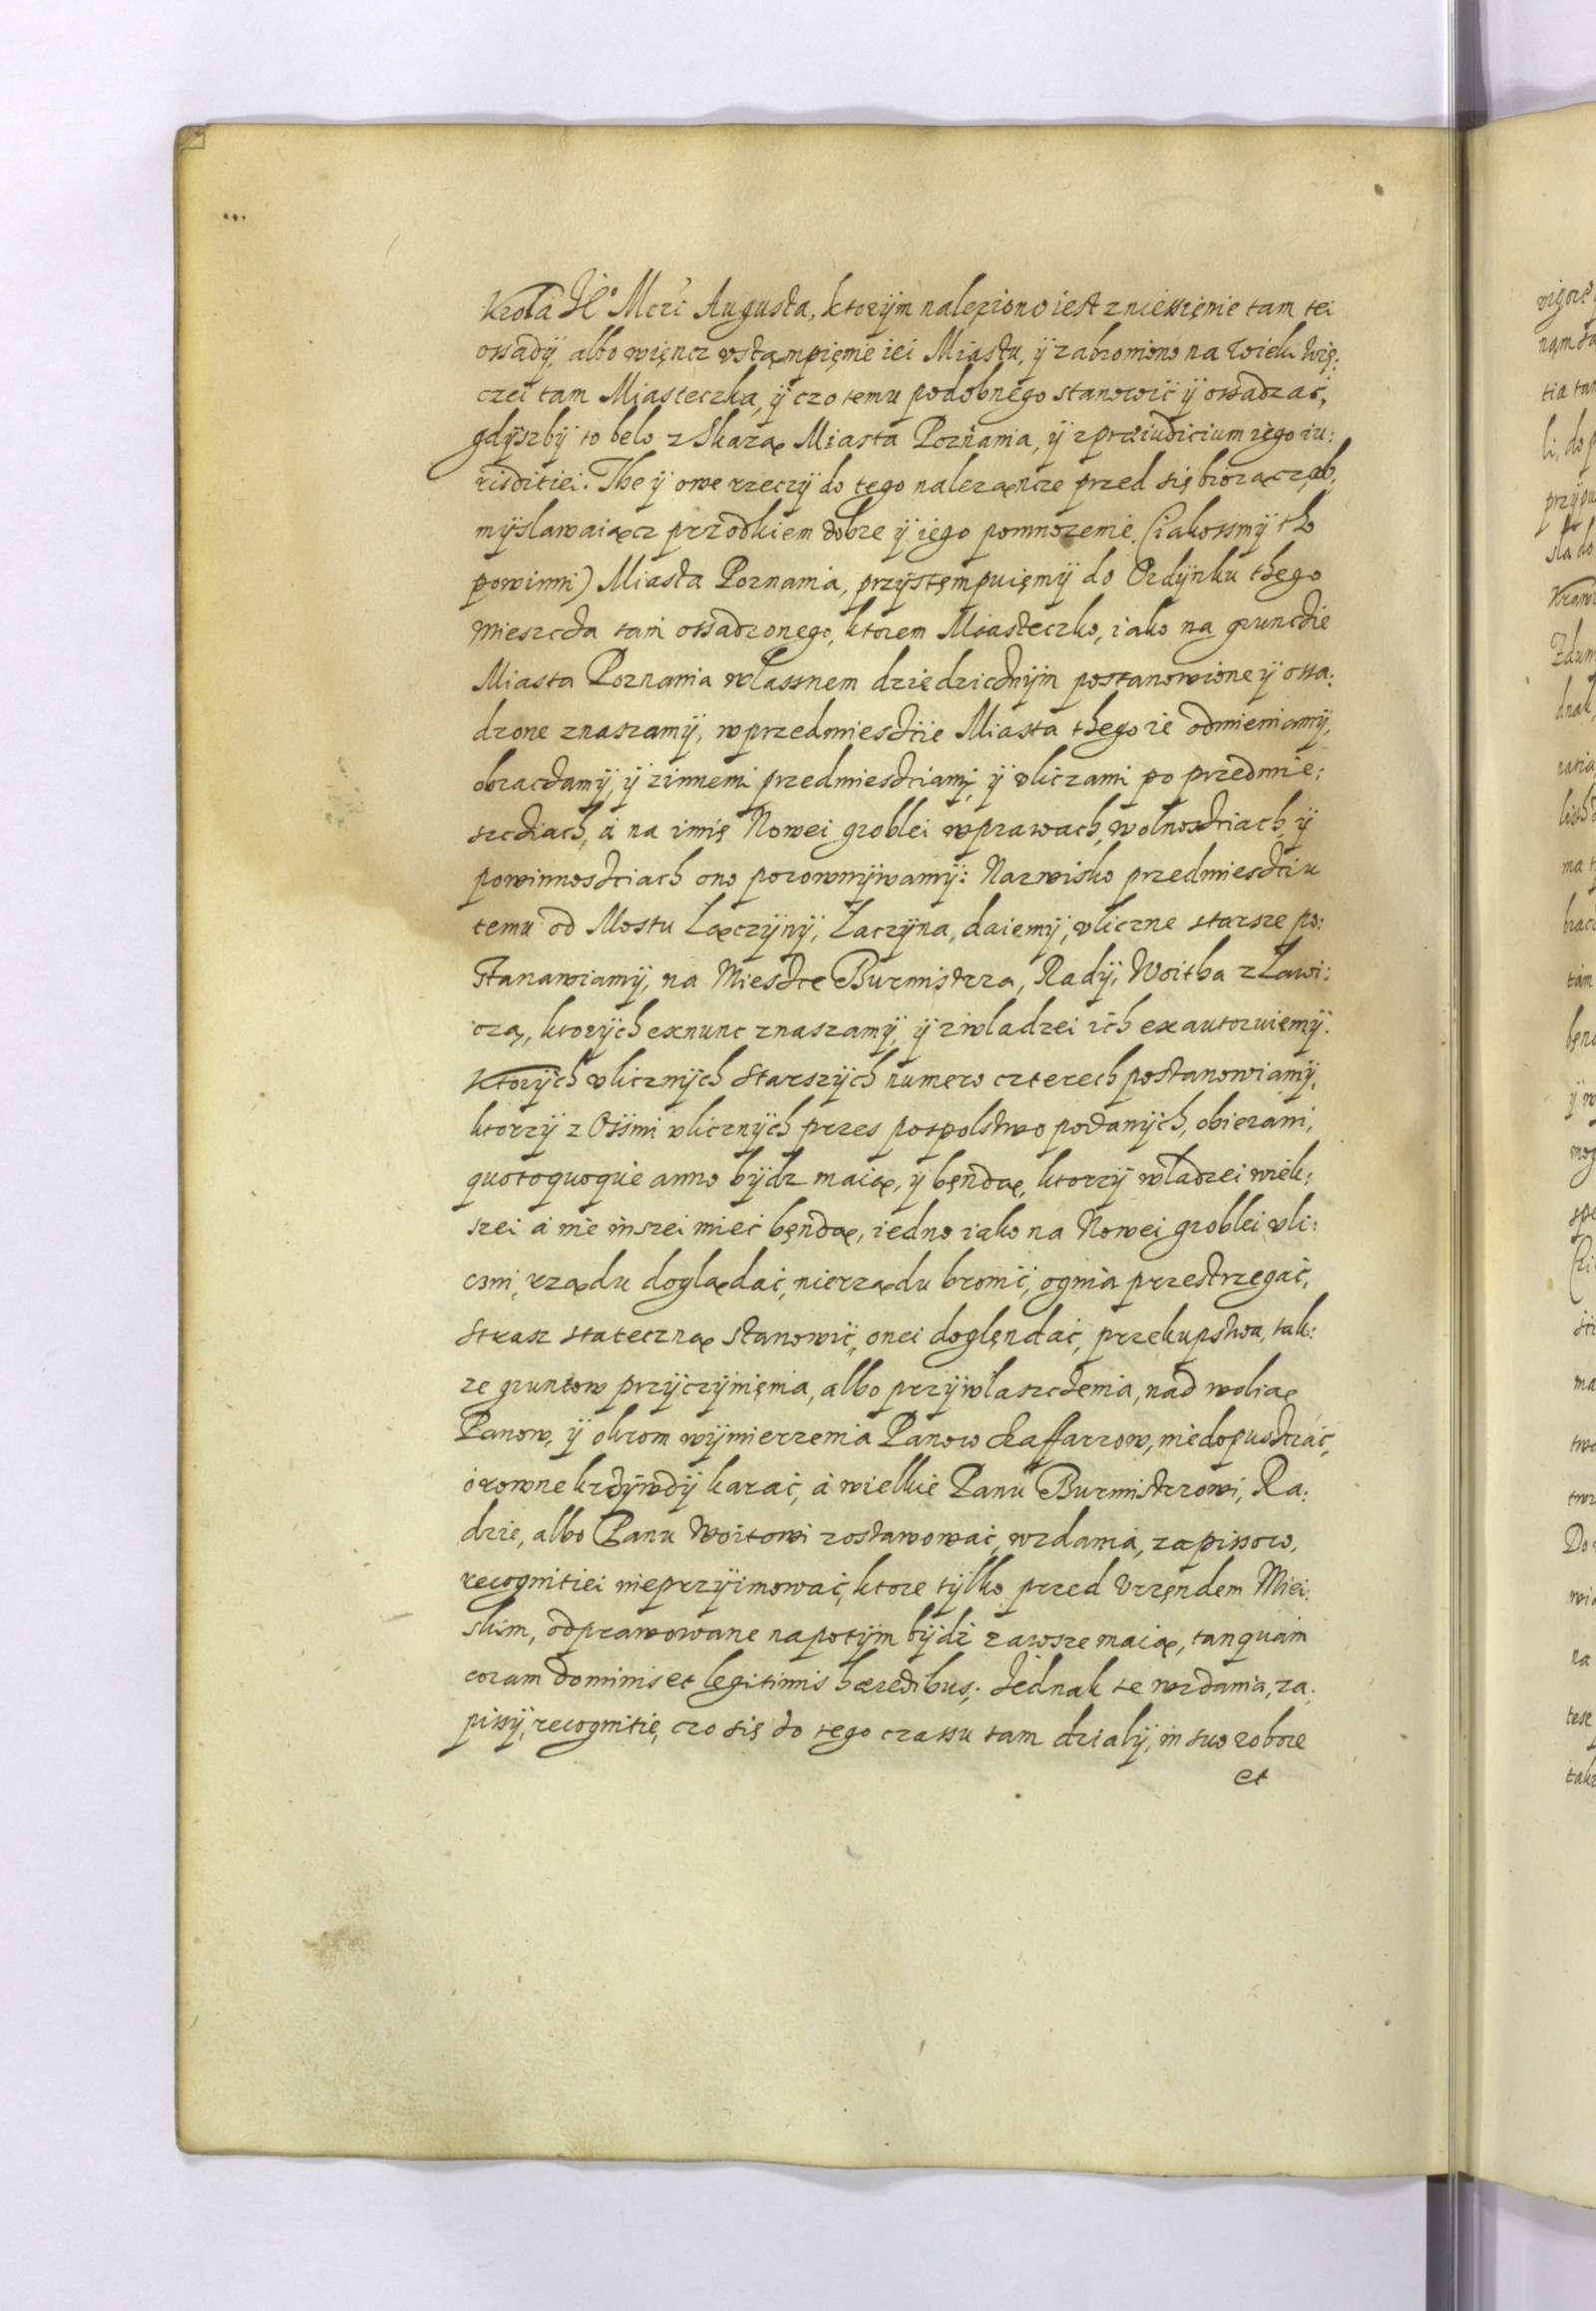 Krola Jº Mczi Augusta, ktorÿm naleziono iest zniessięnie tam tei
ossadÿ, albo więncz vstąmpięnie iei Miastu, ÿ zabroniono na wieki wię:
czei tam Miasteczka, ÿ czo temu podobnego stanowić ÿ ossadzać,
gdÿszbÿ to belo z Skazą Miasta Poznania, ÿ z preiudicium iego iu:
risditiei. The ÿ owe rzeczÿ do tego nalezącze przed się biorącz, ob:
mÿslawaiącz przodkiem dobre ÿ iego pomnozenie (iakossmÿ tho
powinni) Miasta Poznania, przÿstęmpuięmÿ do Ordÿnku thego
Miesczta tam ossadzonego, ktorem Miasteczko, iako na grunczie
Miasta Poznania wlassnem dziedzicznÿm postanowione ÿ ossa:
dzone znaszamÿ, w przedmiesczie Miasta thego ie odmieniamÿ,
obraczamÿ, ÿ z innemi przedmiesciami, ÿ vliczami po przedmie:
sczciach, á na imię Nowei groblei w prawach, wolnosciach, ÿ
powinnosciach ono porownÿwamÿ: Nazwisko przedmiesciu
temu od Mostu Lączÿnÿ, Laczÿna, daiemÿ, vliczne starsze po:
stanawiamÿ, na Miescze Burmistrza, Radÿ, Woitha z Lawi:
czą, ktorÿch exnunc znaszamÿ, ÿ z wladzei ich exautoruiemÿ.
Ktorÿch vlicznÿch Starszÿch numero czterech postanowiamÿ,
ktorzÿ z Ossmi vlicznÿch przes pospolstwo podanÿch, obierani,
quotoquoque anno bÿdz maią, ÿ będą, ktorzÿ wladzei więk:
szei á nie inszei mieć będą, iedno iako na Nowei groblei vli:
czni, rządu doglądać, nierządu bronić, ognia przestrzegać,
Strasz stateczną stanowić, onei doglęndać, przekupstwa, tak:
ze gruntow przÿczÿnięnia, albo przÿwlaszczenia, nad wolią
Panow, ÿ okrom wÿmierzenia Panow Szaffarzow, niedopusczać,
ó rowne krzÿwdÿ karać, á wielkie Panu Burmistrzowi, Ra:
dzie, albo Panu Woitowi zostawować, wzdania, zapissow,
recognitiei nieprzÿimować, ktore tÿlko przed Vrzęndem Miei:
skim, odprawowane napotÿm bÿdz zawsze maią, tanquam
coram dominis et legitimis hæredibus; Jednak te wzdania, za:
pissÿ, recognitię, czo się do tego czassu tam dzialÿ, in suo robore
et